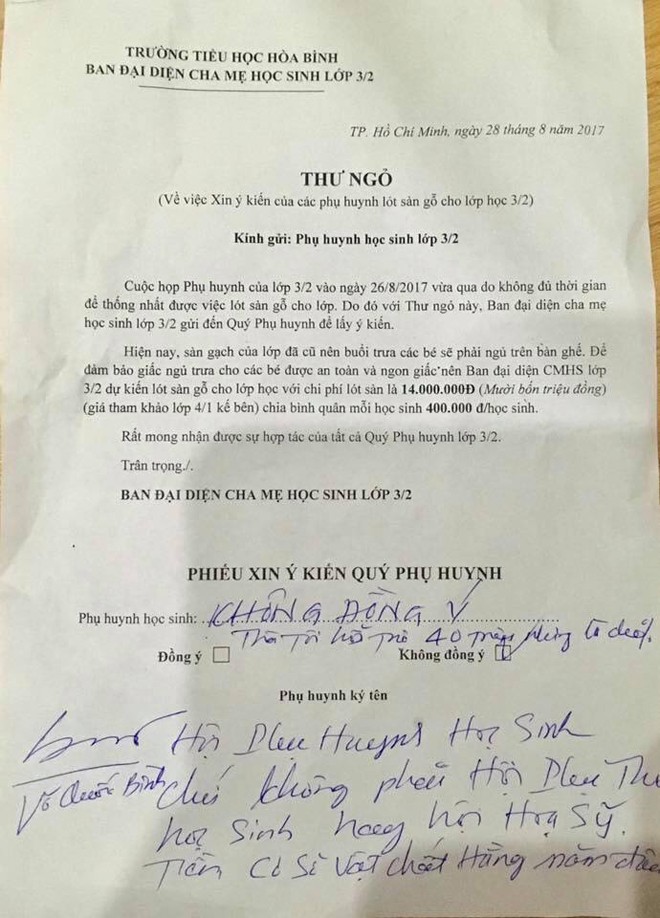 TRƯỜNG TIỂU HỌC HÒA BÌNH
BAN ĐẠI DIỆN CHA MẸ HỌC SINH LỚP 3/2
TP. Hồ Chí Minh, ngày 28 tháng 8 năm 2017
THƯ NGỎ
(Về việc Xin ý kiến của các phụ huynh lót sàn gỗ cho lớp học 3/2)
Kính gửi: Phụ huynh học sinh lớp 3/2
Cuộc họp Phụ huynh của lớp 3/2 vào ngày 26/8/2017 vừa qua do không đủ thời gian
để thống nhất được việc lót sàn gỗ cho lớp. Do đó với Thư ngỏ này, Ban đại diện cha mẹ
học sinh lớp 3/2 gửi đến Quý Phụ huynh để lấy ý kiến.
Hiện nay, sàn gạch của lớp đã cũ nên buổi trưa các bé sẽ phải ngủ trên bàn ghế. Để
đảm bảo giấc ngủ trưa cho các bé được an toàn và ngon giấc nên Ban đại diện CMHS lớp
3/2 dự kiến lót sàn gỗ cho lớp học với chi phí lót sàn là 14.000.000Đ (Mười bốn triệu đồng)
(giá tham khảo lớp 4/1 kế bên) chia bình quân mỗi học sinh 400.000 đ/học sinh.
Rất mong nhận được sự hợp tác của tất cả Quý Phụ huynh lớp 3/2.
Trân trọng./.
BAN ĐẠI DIỆN CHA MẸ HỌC SINH LỚP 3/2
PHIẾU XIN Ý KIẾN QUÝ PHỤ HUYNH
Phụ huynh học sinh: KHÔNG ĐỒNG Ý
Tôi hỗ trợ 40
Đồng ý Không đồng ý
Phụ huynh ký tên
Hội Phụ Huynh Học Sinh
Võ Quốc Bình chứ không phải Hội Phụ Thu
học Sinh hay hội Hoạ Sỹ.
Tiền Cơ Sở Vật chất Hằng năm đâu